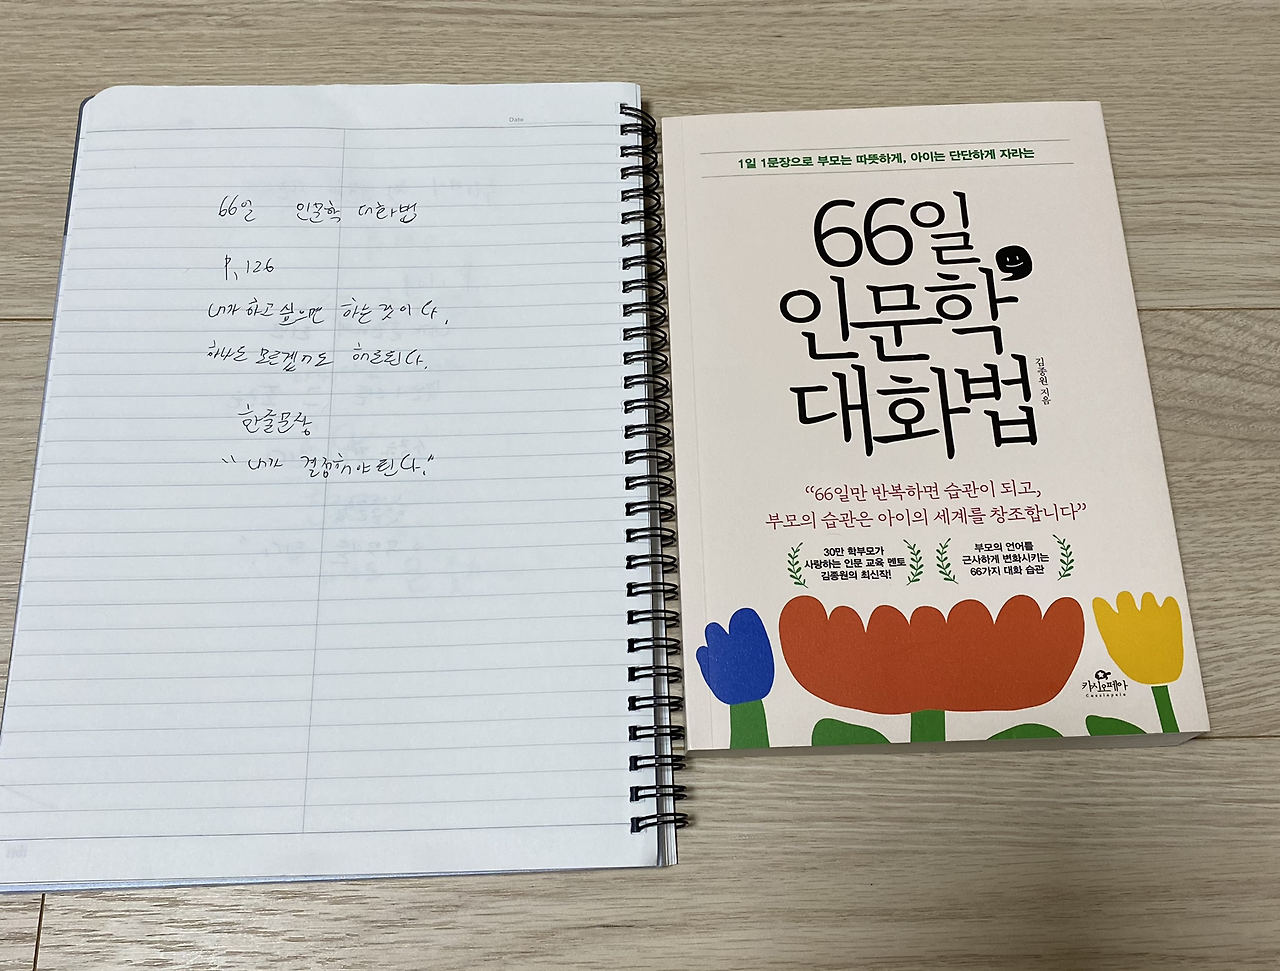 Date
66일 인문학 대화법
P. 126
내가 하고 싶으면 하는 것이다.
하나도 모르겠어도 해도된다.
한글문장
"내가 결정해야 된다."
1일 1문장으로 부모는 따뜻하게, 아이는 단단하게 자라는
66일
인문학
대화법
김종원 지음
“66일만 반복하면 습관이 되고,
부모의 습관은 아이의 세계를 창조합니다”
30만 학부모가
사랑하는 인문 교육 멘토
김종원의 최신작!
부모의 언어를
근사하게 변화시키는
66가지 대화 습관
카시오페아
Cassiopeia